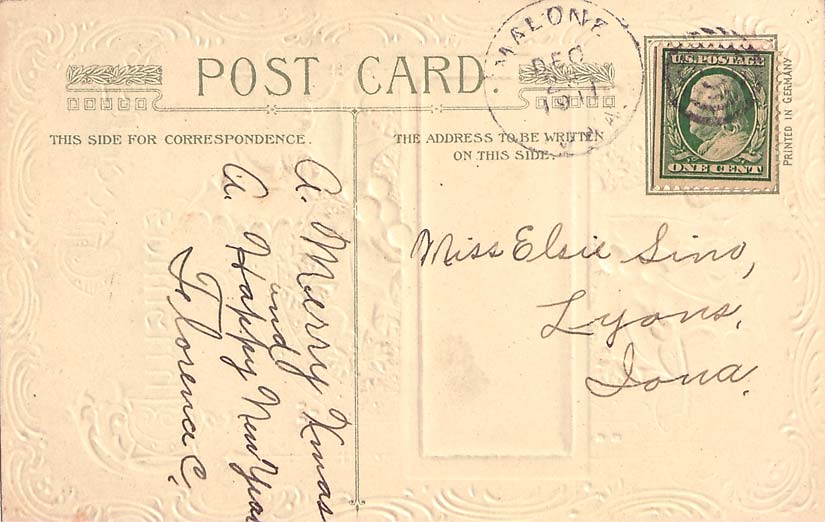 POST CARD.
THIS SIDE FOR CORRESPONDENCE.
THE ADDRESS TO BE WRITTEN
ON THIS SIDE.
MALONE
DEC
1911
U.S. POSTAGE
ONE CENT
PRINTED IN GERMANY
A. Merry Xmas
and
A. Happy New Year
Florence C.
Miss Elsie Sino,
Lyons,
Iowa.